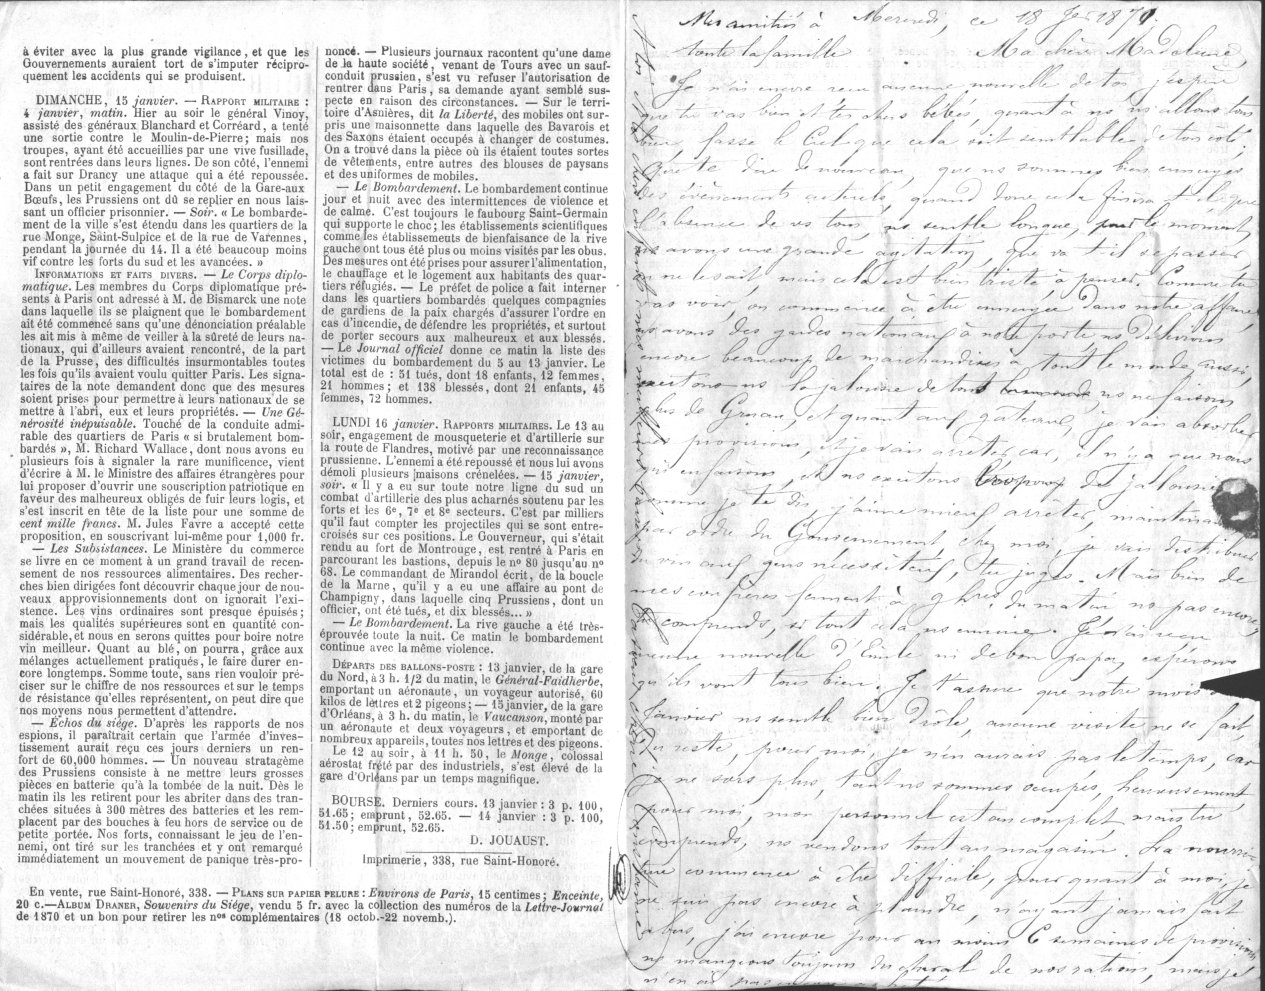 à éviter avec la plus grande vigilance, et que les
Gouvernements auraient tort de s'imputer récipro-
quement les accidents qui se produisent.
DIMANCHE, 15 janvier. — RAPPORT MILITAIRE :
4 janvier, matin. Hier au soir le général Vinoy,
assisté des généraux Blanchard et Corréard, a tenté
une sortie contre le Moulin-de-Pierre; mais nos
troupes, ayant été accueillies par une vive fusillade,
sont rentrées dans leurs lignes. De son côté, l'ennemi
a fait sur Drancy une attaque qui a été repoussée.
Dans un petit engagement du côté de la Gare-aux
Bœufs, les Prussiens ont dû se replier en nous lais-
sant un officier prisonnier. — Soir. « Le bombarde-
ment de la ville s'est étendu dans les quartiers de la
rue Monge, Saint-Sulpice et de la rue de Varennes,
pendant la journée du 14. Il a été beaucoup moins
vif contre les forts du sud et les avancées. »
INFORMATIONS ET FAITS DIVERS. — Le Corps diplo-
matique. Les membres du Corps diplomatique pré-
sents à Paris ont adressé à M. de Bismarck une note
dans laquelle ils se plaignent que le bombardement
ait été commencé sans qu'une dénonciation préalable
les ait mis à même de veiller à la sûreté de leurs na-
tionaux, qui d'ailleurs avaient rencontré, de la part
de la Prusse, des difficultés insurmontables toutes
les fois qu'ils avaient voulu quitter Paris. Les signa-
taires de la note demandent donc que des mesures
soient prises pour permettre à leurs nationaux de se
mettre à l'abri, eux et leurs propriétés. — Une Gé-
nérosité inépuisable. Touché de la conduite admi-
rable des quartiers de Paris « si brutalement bom-
bardés », M. Richard Wallace, dont nous avons eu
plusieurs fois à signaler la rare munificence, vient
d'écrire à M. le Ministre des affaires étrangères pour
lui proposer d'ouvrir une souscription patriotique en
faveur des malheureux obligés de fuir leurs logis, et
s'est inscrit en tête de la liste pour une somme de
cent mille francs. M. Jules Favre a accepté cette
proposition, en souscrivant lui-même pour 1,000 fr.
— Les Subsistances. Le Ministère du commerce
se livre en ce moment à un grand travail de recen-
sement de nos ressources alimentaires. Des recher-
ches bien dirigées font découvrir chaque jour de nou-
veaux approvisionnements dont on ignorait l'exi-
stence. Les vins ordinaires sont presque épuisés;
mais les qualités supérieures sont en quantité con-
sidérable, et nous en serons quittes pour boire notre
vin meilleur. Quant au blé, on pourra, grâce aux
mélanges actuellement pratiqués, le faire durer en-
core longtemps. Somme toute, sans rien vouloir pré-
ciser sur le chiffre de nos ressources et sur le temps
de résistance qu'elles représentent, on peut dire que
nos moyens nous permettent d'attendre.
— Échos du siége. D'après les rapports de nos
espions, il paraîtrait certain que l'armée d'inves-
tissement aurait reçu ces jours derniers un ren-
fort de 60,000 hommes. — Un nouveau stratagème
des Prussiens consiste à ne mettre leurs grosses
pièces en batterie qu'à la tombée de la nuit. Dès le
matin ils les retirent pour les abriter dans des tran-
chées situées à 300 mètres des batteries et les rem-
placent par des bouches à feu hors de service ou de
petite portée. Nos forts, connaissant le jeu de l'en-
nemi, ont tiré sur les tranchées et y ont remarqué
immédiatement un mouvement de panique très-pro-
noncé. — Plusieurs journaux racontent qu'une dame
de la haute société, venant de Tours avec un sauf-
conduit prussien, s'est vu refuser l'autorisation de
rentrer dans Paris, sa demande ayant semblé sus-
pecte en raison des circonstances. — Sur le terri-
toire d'Asnières, dit la Liberté, des mobiles ont sur-
pris une maisonnette dans laquelle des Bavarois et
des Saxons étaient occupés à changer de costumes.
On a trouvé dans la pièce où ils étaient toutes sortes
de vêtements, entre autres des blouses de paysans
et des uniformes de mobiles.
— Le Bombardement. Le bombardement continue
jour et nuit avec des intermittences de violence et
de calme. C'est toujours le faubourg Saint-Germain
qui supporte le choc; les établissements scientifiques
comme les établissements de bienfaisance de la rive
gauche ont tous été plus ou moins visités par les obus.
Des mesures ont été prises pour assurer l'alimentation,
le chauffage et le logement aux habitants des quar-
tiers réfugiés. — Le préfet de police a fait interner
dans les quartiers bombardés quelques compagnies
de gardiens de la paix chargés d'assurer l'ordre en
cas d'incendie, de défendre les propriétés, et surtout
de porter secours aux malheureux et aux blessés.
— Le Journal officiel donne ce matin la liste des
victimes du bombardement du 5 au 13 janvier. Le
total est de : 51 tués, dont 18 enfants, 12 femmes,
21 hommes; et 138 blessés, dont 21 enfants, 45
femmes, 72 hommes.
LUNDI 16 janvier. RAPPORTS MILITAIRES. Le 13 au
soir, engagement de mousqueterie et d'artillerie sur
la route de Flandres, motivé par une reconnaissance
prussienne. L'ennemi a été repoussé et nous lui avons
démoli plusieurs maisons crénelées. — 15 janvier,
soir. « Il y a eu sur toute notre ligne du sud un
combat d'artillerie des plus acharnés soutenu par les
forts et les 6e, 7e et 8e secteurs. C'est par milliers
qu'il faut compter les projectiles qui se sont entre-
croisés sur ces positions. Le Gouverneur, qui s'était
rendu au fort de Montrouge, est rentré à Paris en
parcourant les bastions, depuis le no 80 jusqu'au no
68. Le commandant de Mirandol écrit, de la boucle
de la Marne, qu'il y a eu une affaire au pont de
Champigny, dans laquelle cinq Prussiens, dont un
officier, ont été tués, et dix blessés... »
— Le Bombardement. La rive gauche a été très-
éprouvée toute la nuit. Ce matin le bombardement
continue avec la même violence.
DÉPARTS DES BALLONS-POSTE : 13 janvier, de la gare
du Nord, à 3 h. 1/2 du matin, le Général-Faidherbe,
emportant un aéronaute, un voyageur autorisé, 60
kilos de lettres et 2 pigeons; — 15 janvier, de la gare
d'Orléans, à 3 h. du matin, le Vaucanson, monté par
un aéronaute et deux voyageurs, et emportant de
nombreux appareils, toutes nos lettres et des pigeons.
Le 12 au soir, à 11 h. 50, le Monge, colossal
aérostat frété par des industriels, s'est élevé de la
gare d'Orléans par un temps magnifique.
BOURSE. Derniers cours. 13 janvier : 3 p. 100,
51.65; emprunt, 52.65. — 14 janvier : 3 p. 100,
51.50; emprunt, 52.65.
D. JOUAUST.
Imprimerie, 338, rue Saint-Honoré.
En vente, rue Saint-Honoré, 338. — PLANS SUR PAPIER PELURE : Environs de Paris, 15 centimes; Enceinte,
20 c. — ALBUM DRANER, Souvenirs du Siége, vendu 5 fr. avec la collection des numéros de la Lettre-Journal
de 1870 et un bon pour retirer les nos complémentaires (18 octob.-22 novemb.).
Mes amitiés à
toute la famille
Mercredi, ce 18 Jer 1871.
Ma chère Madeleine,
Je n'ai encore reçu aucune nouvelle de toi j'espère
que tu vas bien et tes chers bébés, quant à ns ns allons tous
bien, fasse le Ciel que cela soit semblable de ton côté,
Que te dire de nouveau, que ns sommes bien ennuyés
des évènements actuels, quand donc cela finira-t-il que
l'absence de vs tous, ns semble longue, pour le moment
ns avons une grande agitation, que va-t-il se passer
on ne le sait mais cela est bien triste à penser. Comme tu
vas voir, on commence à être ennuyé dans notre affaire,
ns avons des gardes nationaux à notre porte ns délivrons
encore beaucoup de marchandises à tout le monde, aussi,
excitons-ns la jalousie de tous ns ne faisons
plus de et quant aux gâteaux, je vais absorber
mes provisions, et je vais arrêter car, il n'y a que nous
qui en faisons, et ns excitons trop de jalousie
comme je te dis, j'aime mieux arrêter, maintenant
par ordre du Gouvernement, chez moi, je vais distribuer
du vin aux gens nécessiteux, tu juges. Mais bien de
mes confrères ferment à 9 hres du matin ns pas encore,
tu comprends, si tout cela ns ennuie. Je n'ai reçu
aucune nouvelle d'Emile ni de bon papa, espérons
qu'ils vont tous bien. Je t'assure que notre mois de
Janvier ns semble bien drôle, aucune visite ne se fait
Du reste, pour moi, je n'en aurais pas le temps, car
je ne sors plus, tant ns sommes occupés, heureusement
pour moi, mon personnel est au complet, mais tu
comprends, ns vendons tout au magasin. La nourri-
ture commence à être difficile, pour quant à moi, je
ne suis pas encore à plaindre, n'ayant jamais fait
abus, j'ai encore pour au moins 6 semaines de provisions
ns mangeons toujours du cheval de nos rations, mais je
n'en ai pas encore